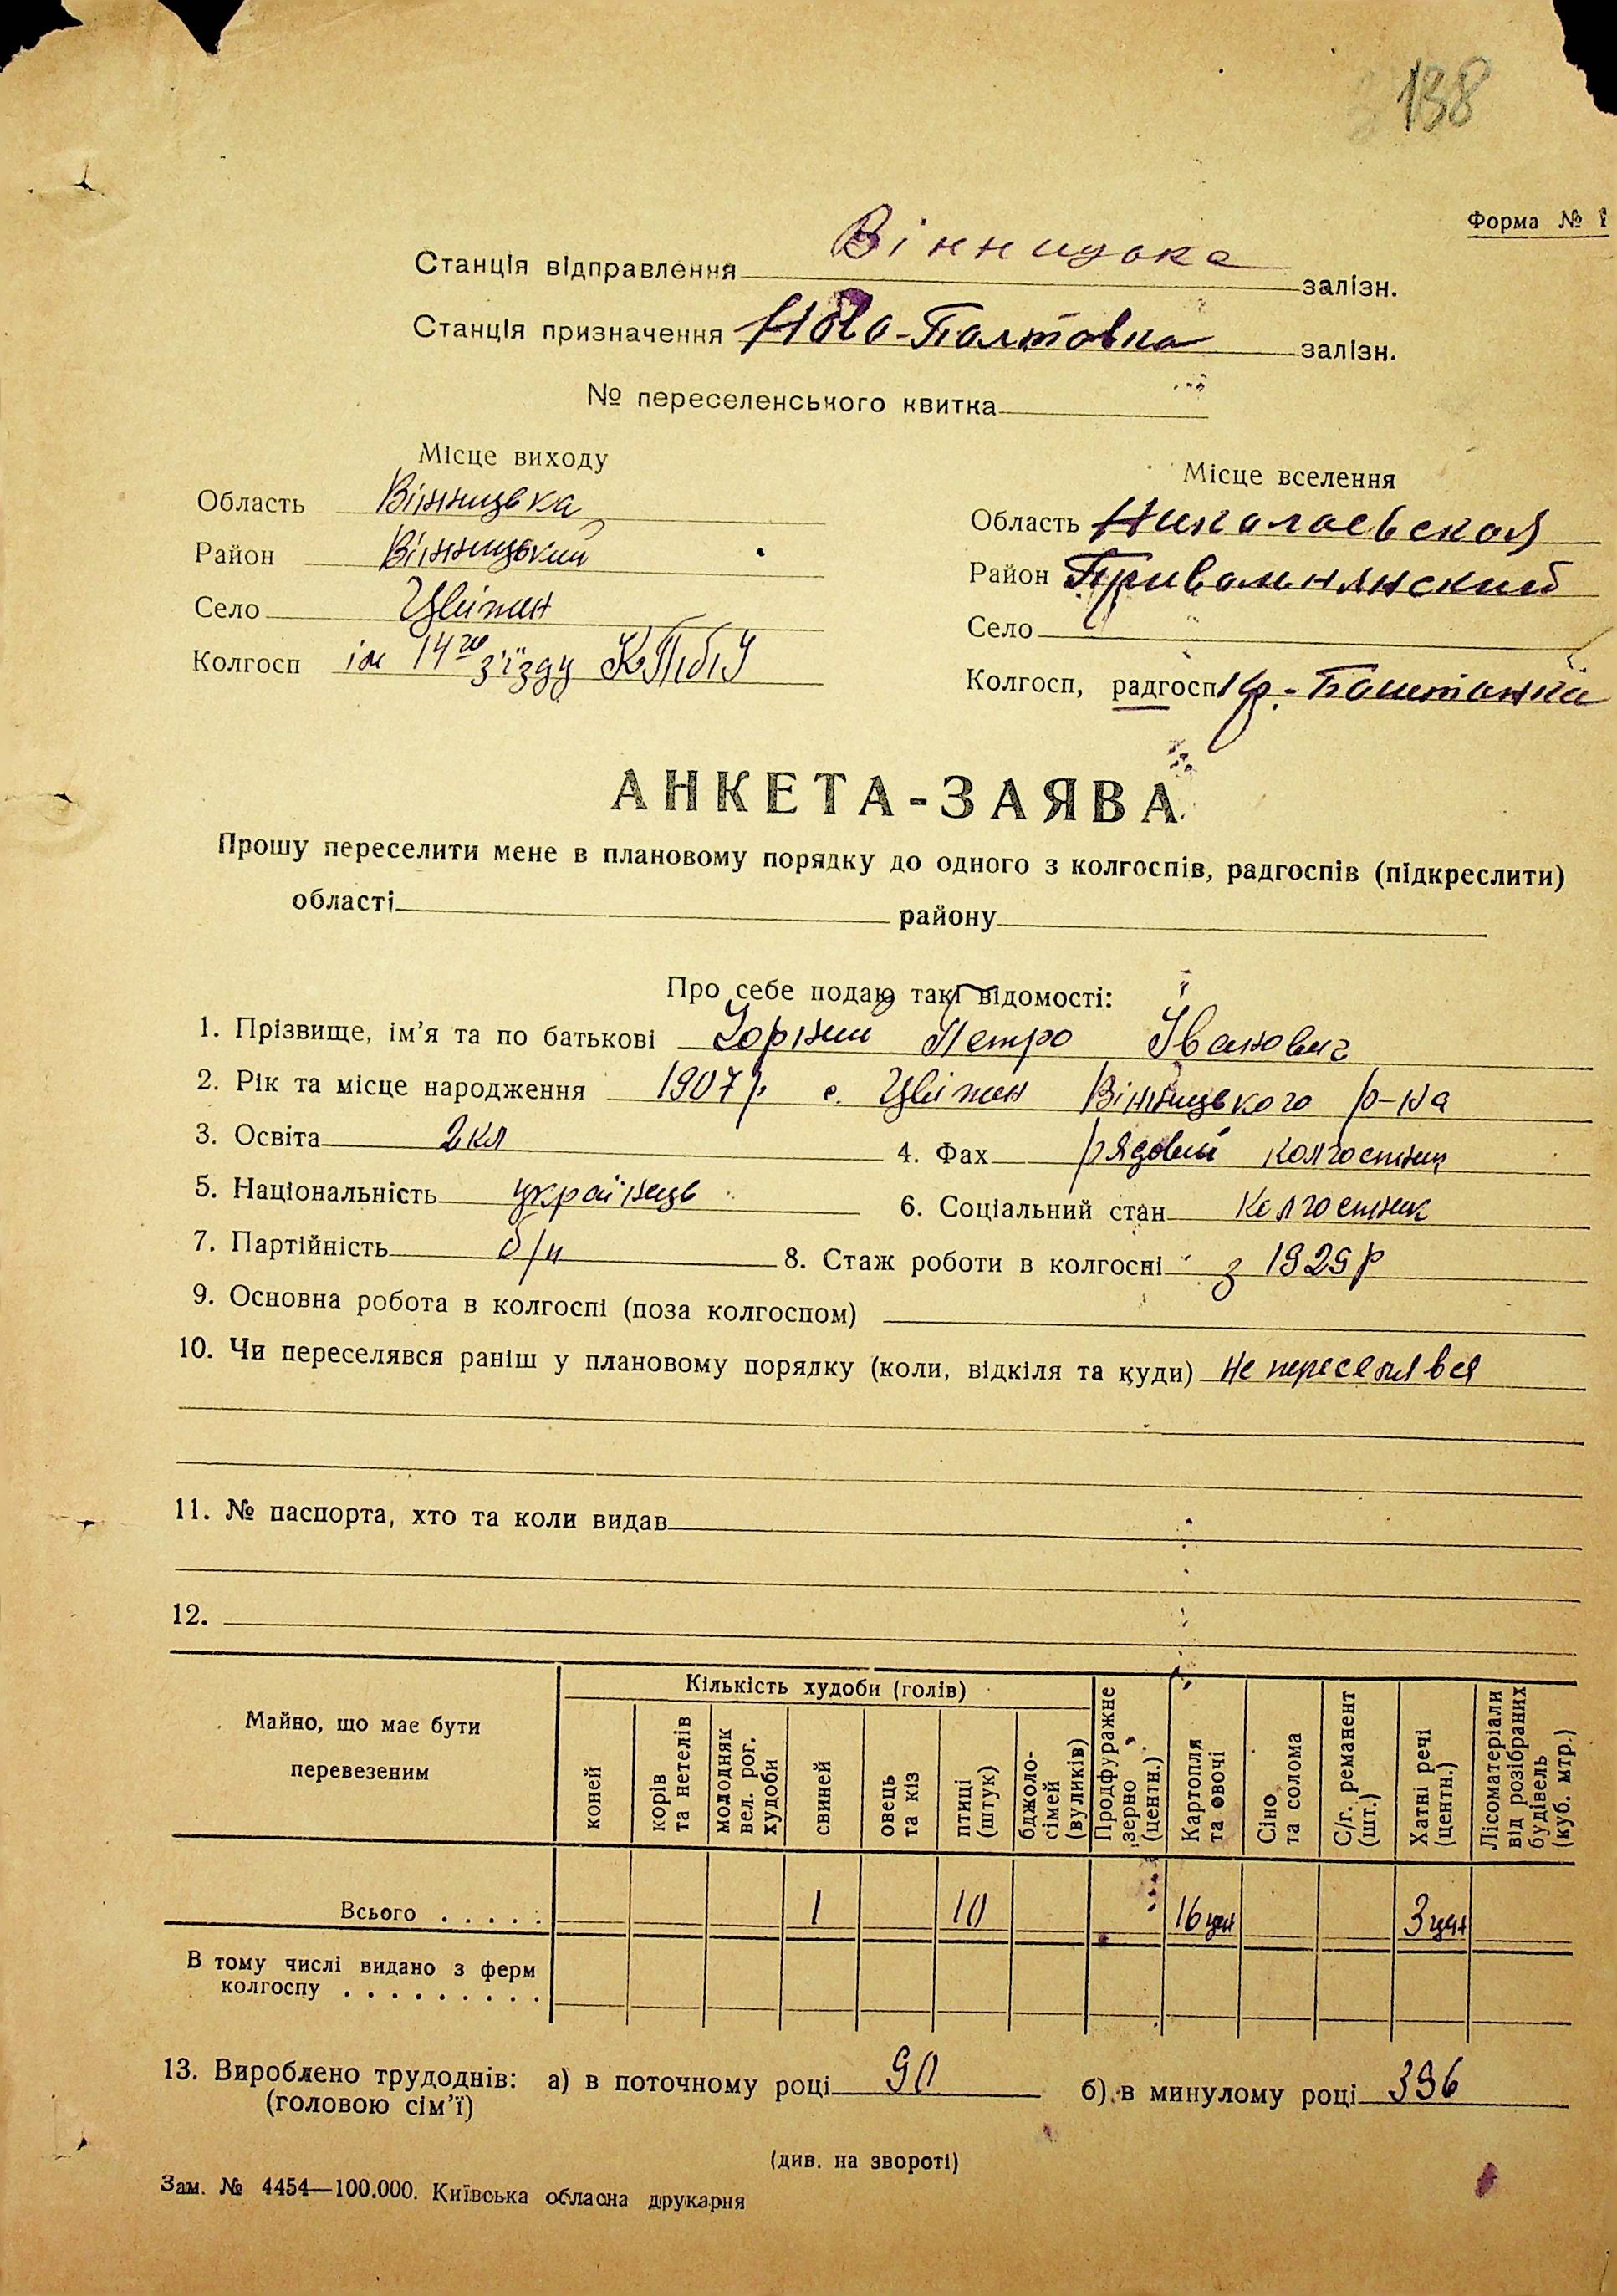 138
Форма № 1
Станція відправлення Вінницька залізн.
Станція призначення Ново-Полтовка залізн.
№ переселенського квитка
Місце виходу
Область Вінницька
Район Вінницький
Село Цвіжин
Колгосп ім 14го з'їзду КП(б)У
Місце вселення
Область Николаевская
Район Привольнянский
Село
Колгосп, радгосп Кр.-Баштанка
АНКЕТА-ЗАЯВА
Прошу переселити мене в плановому порядку до одного з колгоспів, радгоспів (підкреслити)
області району
Про себе подаю такі відомості:
1. Прізвище, ім'я та по батькові Чорний Петро Іванович
2. Рік та місце народження 1907р. с. Цвіжин Вінницького р-на
3. Освіта 2кл 4. Фах рядовий колгоспник
5. Національність українець 6. Соціальний стан колгоспник
7. Партійність б/п 8. Стаж роботи в колгоспі з 1929р
9. Основна робота в колгоспі (поза колгоспом)
10. Чи переселявся раніш у плановому порядку (коли, відкіля та куди) Не переселявся
11. № паспорта, хто та коли видав
12.
Майно, що має бути перевезеним
Кількість худоби (голів)
коней
корів та нетелів
молодняк вел. рог. худоби
свиней
овець та кіз
птиці (штук)
бджоло-сімей (вуликів)
Продфуражне зерно (центн.)
Картопля та овочі
Сіно та солома
С/г. реманент (шт.)
Хатні речі (центн.)
Лісоматеріали від розібраних будівель (куб. мтр.)
Всього . . . . . 1 10 16 цн 3 цн
В тому числі видано з ферм
колгоспу . . . . . . . . .
13. Вироблено трудоднів: а) в поточному році 90 б) в минулому році 396
(головою сім'ї)
(див. на звороті)
Зам. № 4454—100.000. Київська обласна друкарня